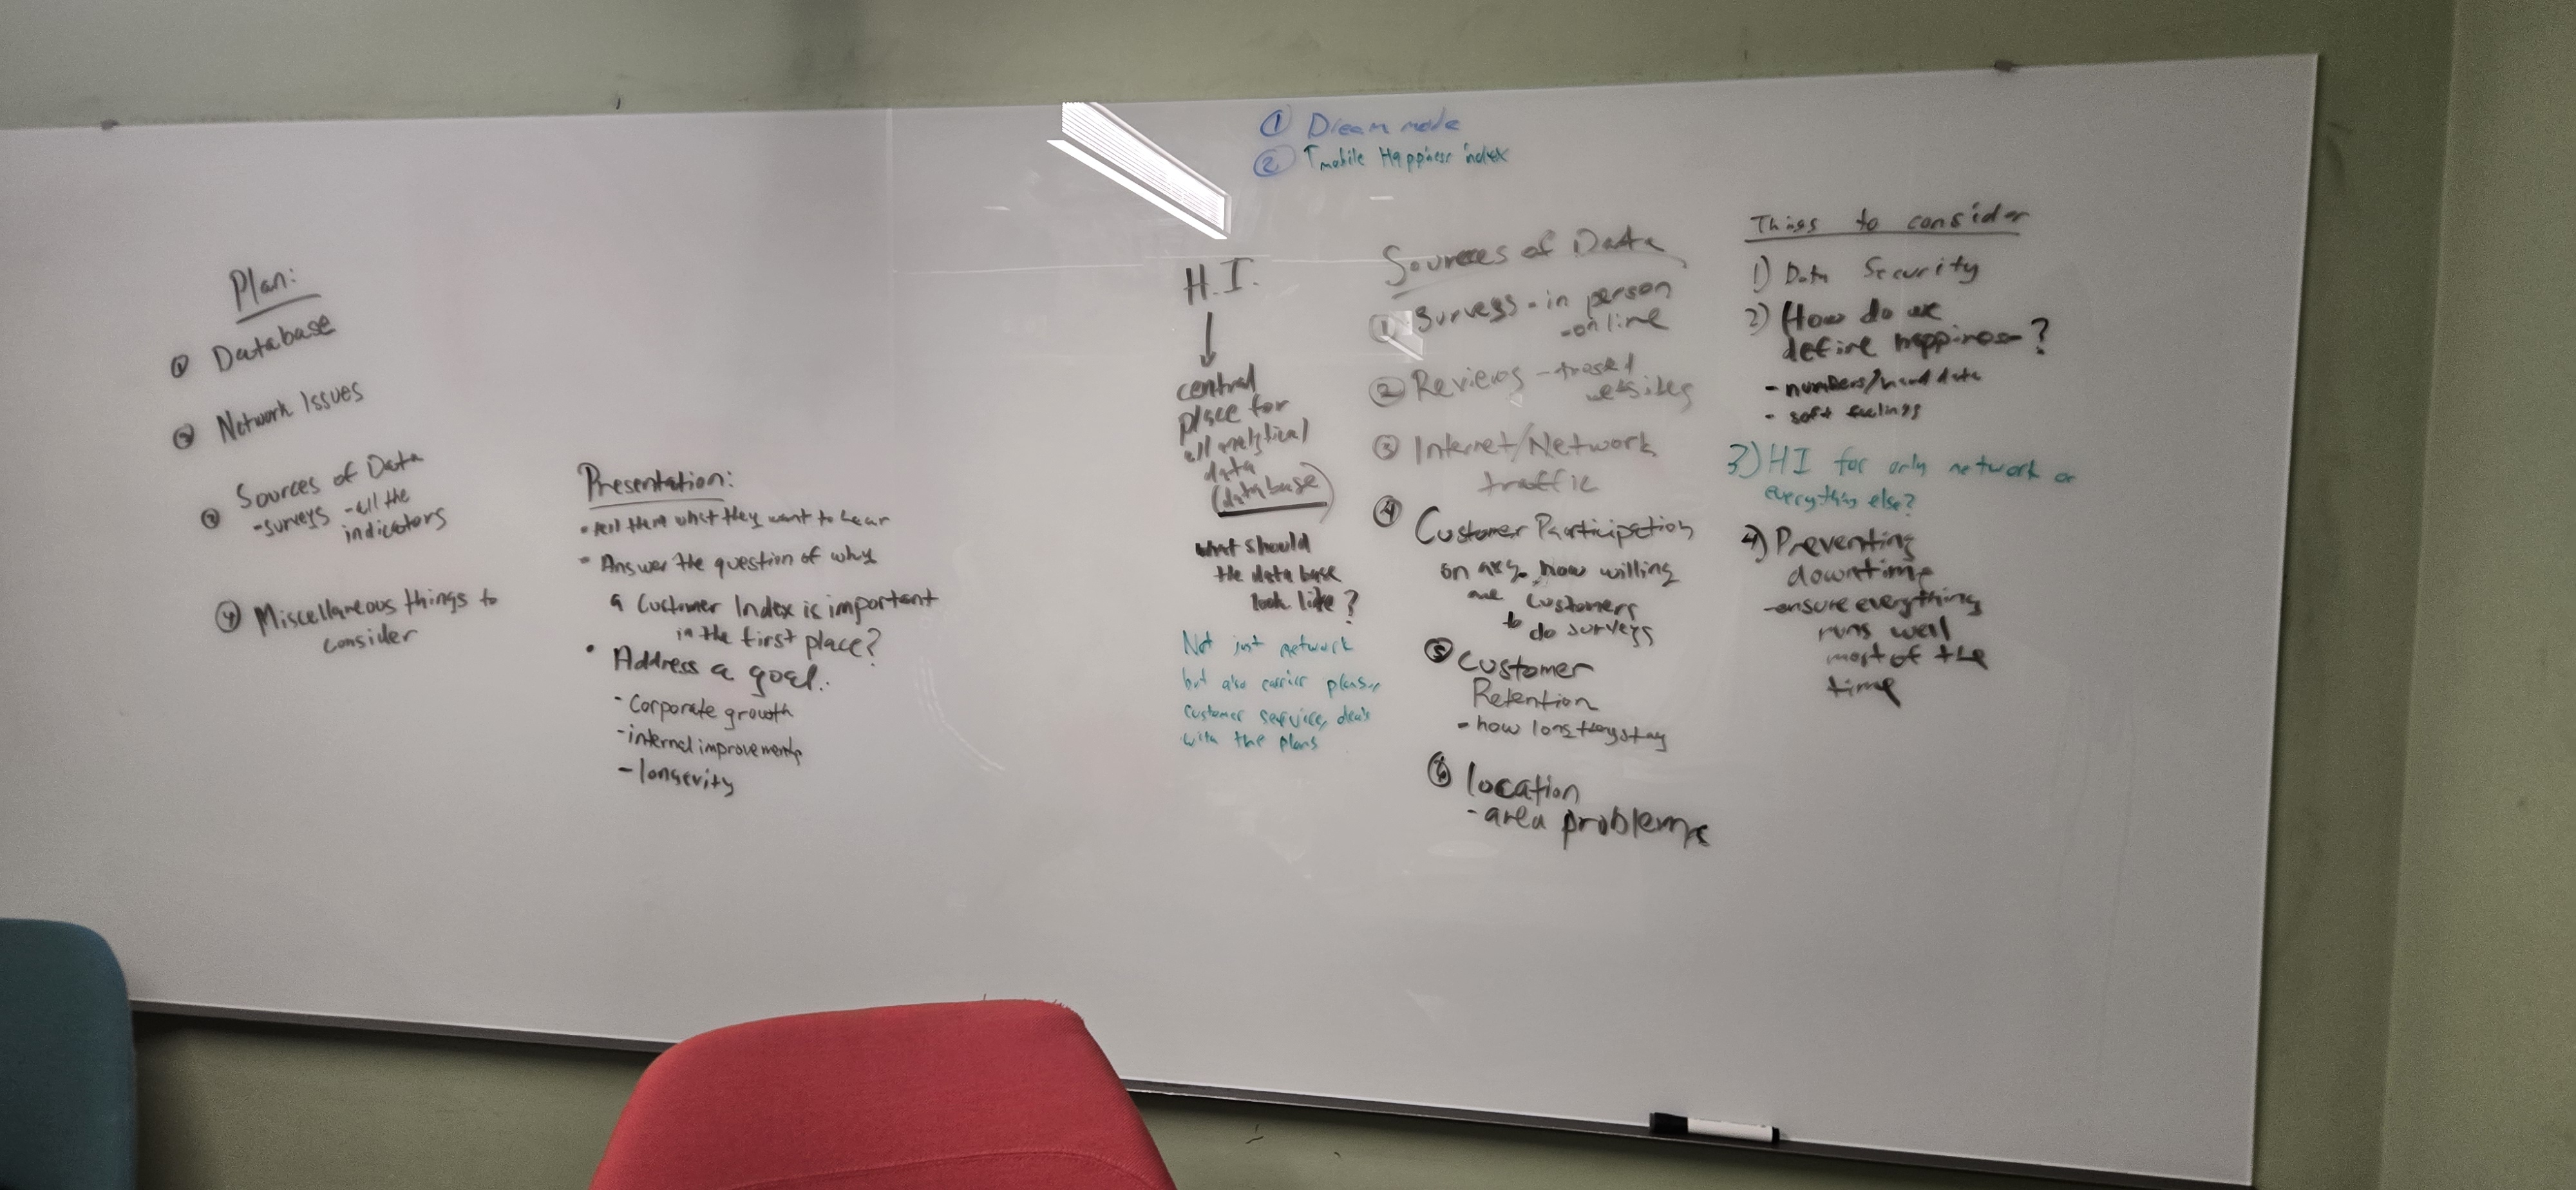 ① Dream mode
② Tmobile Happiness index
Plan:
① Database
② Network Issues
③ Sources of Data
-surveys -all the
indicators
④ Miscellaneous things to
consider
Presentation:
• tell them what they want to hear
• Answer the question of why
a Customer Index is important
in the first place?
• Address a goal.
- Corporate growth
- internal improvements
- longevity
H.I.
central
place for
all analytical
data
(database)
what should
the database
look like?
Not just network
but also carrier
customer service, deals
with the plans
Sources of Data
① Surveys - in person
- online
② Reviews - trusted
websites
③ Internet/Network
traffic
④ Customer Participation
on avg. how willing
are customers
to do surveys
⑤ Customer
Retention
- how long they stay
⑥ location
- area problems
Things to consider
1) Data Security
2) How do we
define happiness?
- numbers/hard data
- soft feelings
3) HI for only network or
everything else?
4) Preventing
downtime
-ensure everything
runs well
most of the
time